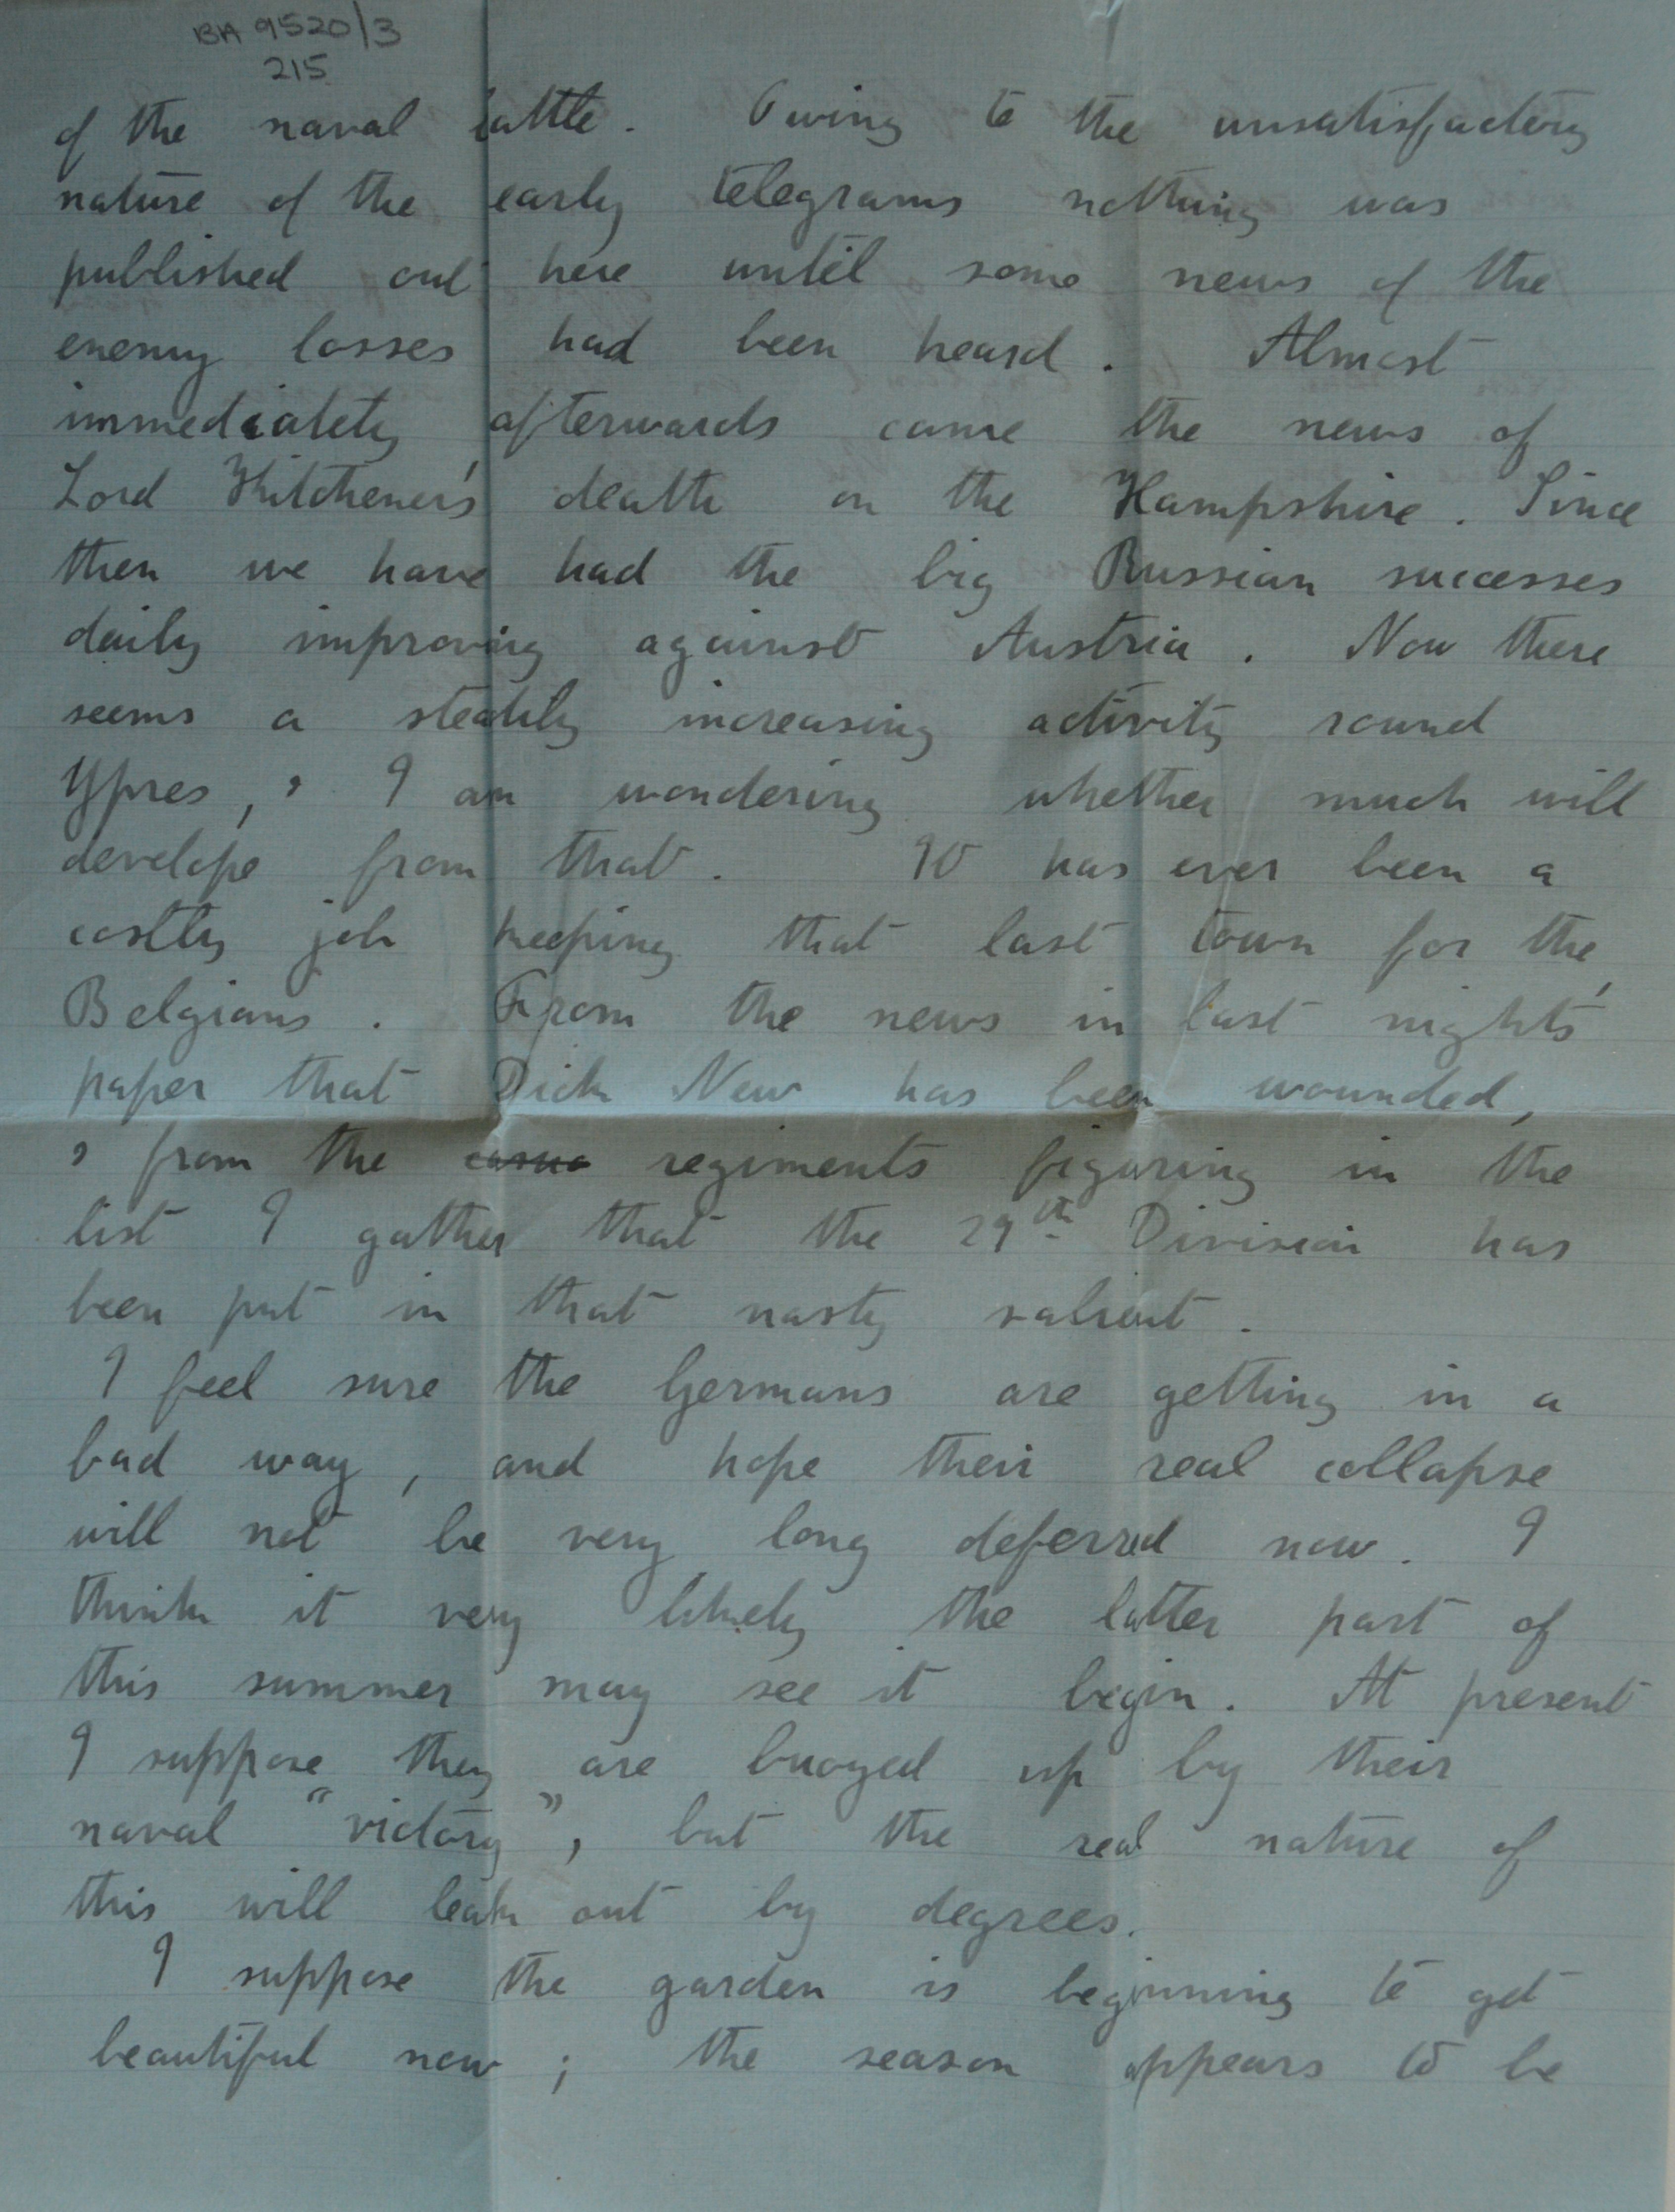 BA 9520/3
215
of the naval battle. Owing to the unsatisfactory
nature of the early telegrams nothing was
published out here until some news of the
enemy losses had been heard. Almost
immediately afterwards came the news of
Lord Kitchener's death on the Hampshire. Since
then we have had the big Russian successes
daily improving against Austria. Now there
seems a steadily increasing activity round
Ypres, & I am wondering whether much will
develope from that. It has ever been a
costly job keeping that last town for the
Belgians. From the news in last night's
paper that Dick New has been wounded,
& from the regiments figuring in the
list I gather that the 29th Division has
been put in that nasty salient.
I feel sure the Germans are getting in a
bad way, and hope their real collapse
will not be very long deferred now. I
think it very likely the latter part of
this summer may see it begin. At present
I suppose they are buoyed up by their
naval "victory", but the real nature of
this will leak out by degrees.
I suppose the garden is beginning to get
beautiful now; the season appears to be